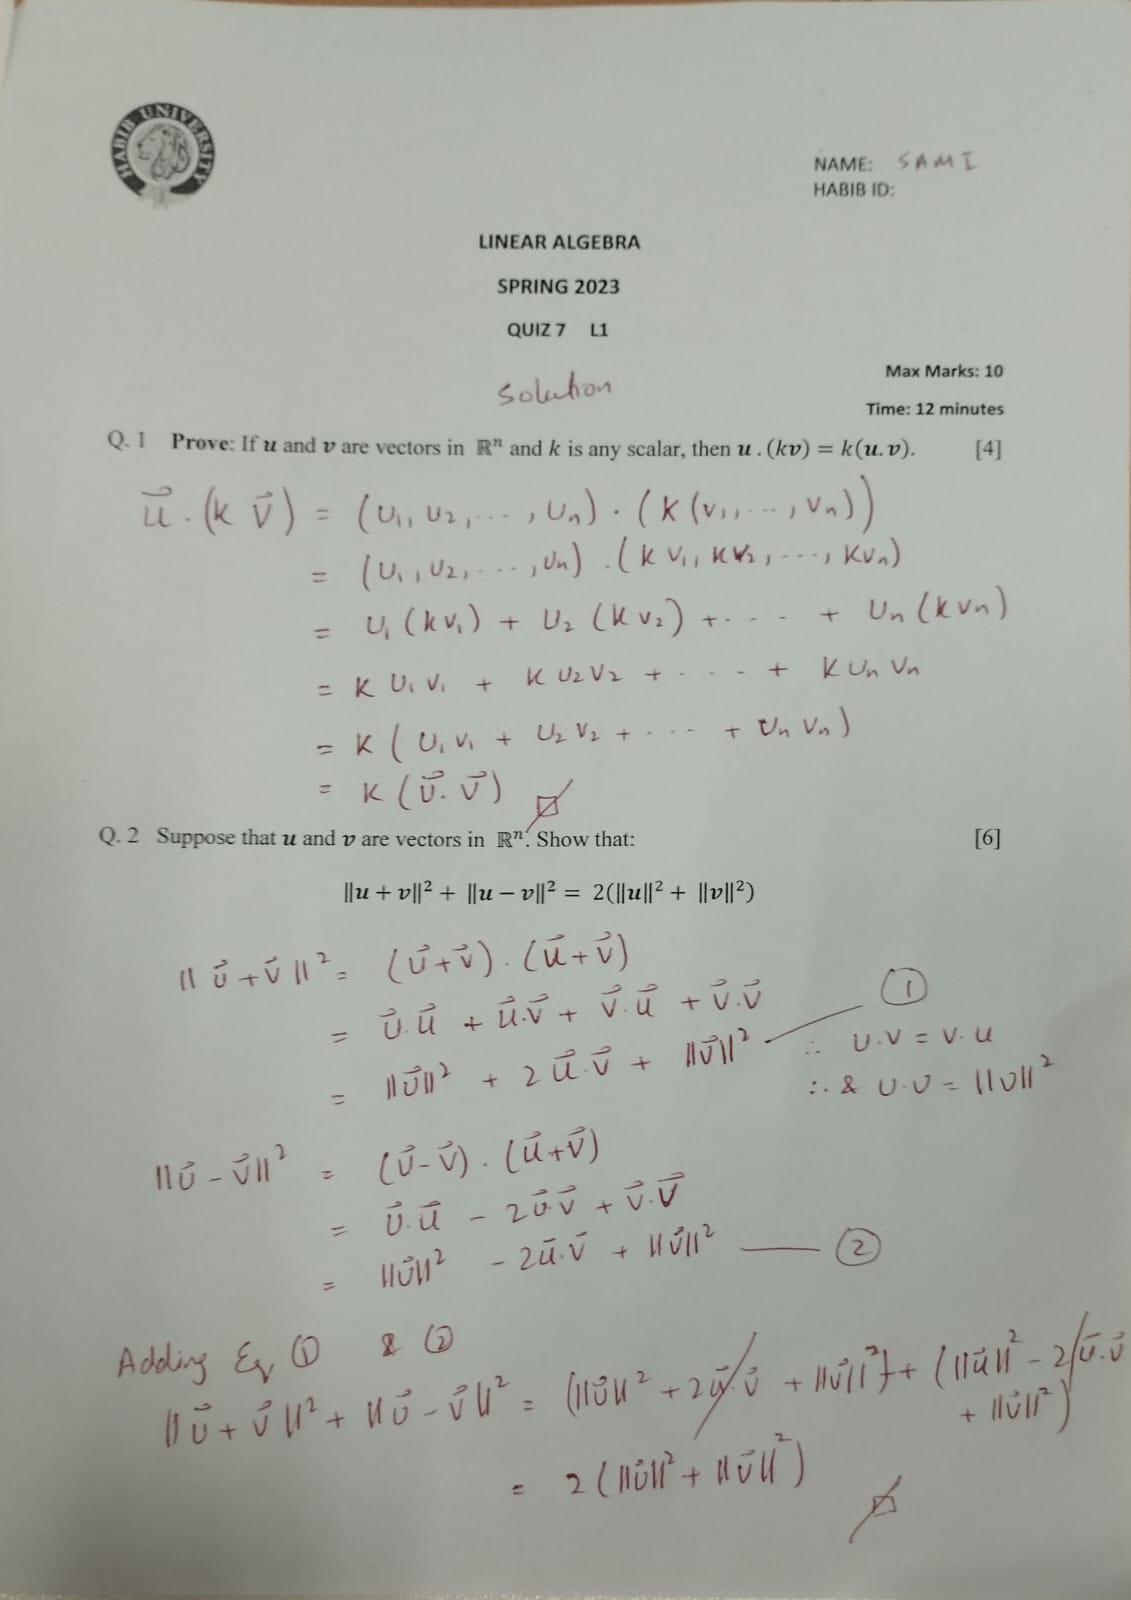 HABIB UNIVERSITY
NAME: SAMI
HABIB ID:
LINEAR ALGEBRA
SPRING 2023
QUIZ 7 L1
Solution
Max Marks: 10
Time: 12 minutes
Q. 1 Prove: If u and v are vectors in ℝⁿ and k is any scalar, then u . (kv) = k(u. v). [4]
u⃗ . (k v⃗) = (u₁, u₂, ... , uₙ) . (k (v₁, ..., vₙ))
= (u₁, u₂, ..., uₙ) . (k v₁, k v₂, ..., kvₙ)
= u₁ (k v₁) + u₂ (k v₂) + . . . + uₙ (k vₙ)
= k u₁ v₁ + k u₂ v₂ + . . . + k uₙ vₙ
= k ( u₁ v₁ + u₂ v₂ + . . . + uₙ vₙ )
= k (u⃗. v⃗)
Q. 2 Suppose that u and v are vectors in ℝⁿ. Show that: [6]
‖u + v‖² + ‖u − v‖² = 2(‖u‖² + ‖v‖²)
‖u⃗ + v⃗‖² = (u⃗ + v⃗) . (u⃗ + v⃗)
= u⃗. u⃗ + u⃗.v⃗ + v⃗. u⃗ + v⃗.v⃗ ①
= ‖u⃗‖² + 2 u⃗.v⃗ + ‖v⃗‖² ∴ u.v = v.u
∴ & u.u = ‖u‖²
‖u⃗ − v⃗‖² = (u⃗ − v⃗) . (u⃗ + v⃗)
= u⃗. u⃗ − 2u⃗.v⃗ + v⃗.v⃗
= ‖u⃗‖² − 2u⃗.v⃗ + ‖v⃗‖² ②
Adding Eq ① & ②
‖u⃗ + v⃗‖² + ‖u⃗ − v⃗‖² = (‖u⃗‖² + 2u⃗.v⃗ + ‖v⃗‖²) + (‖u⃗‖² − 2u⃗.v⃗
+ ‖v⃗‖²)
= 2 (‖u⃗‖² + ‖v⃗‖²)